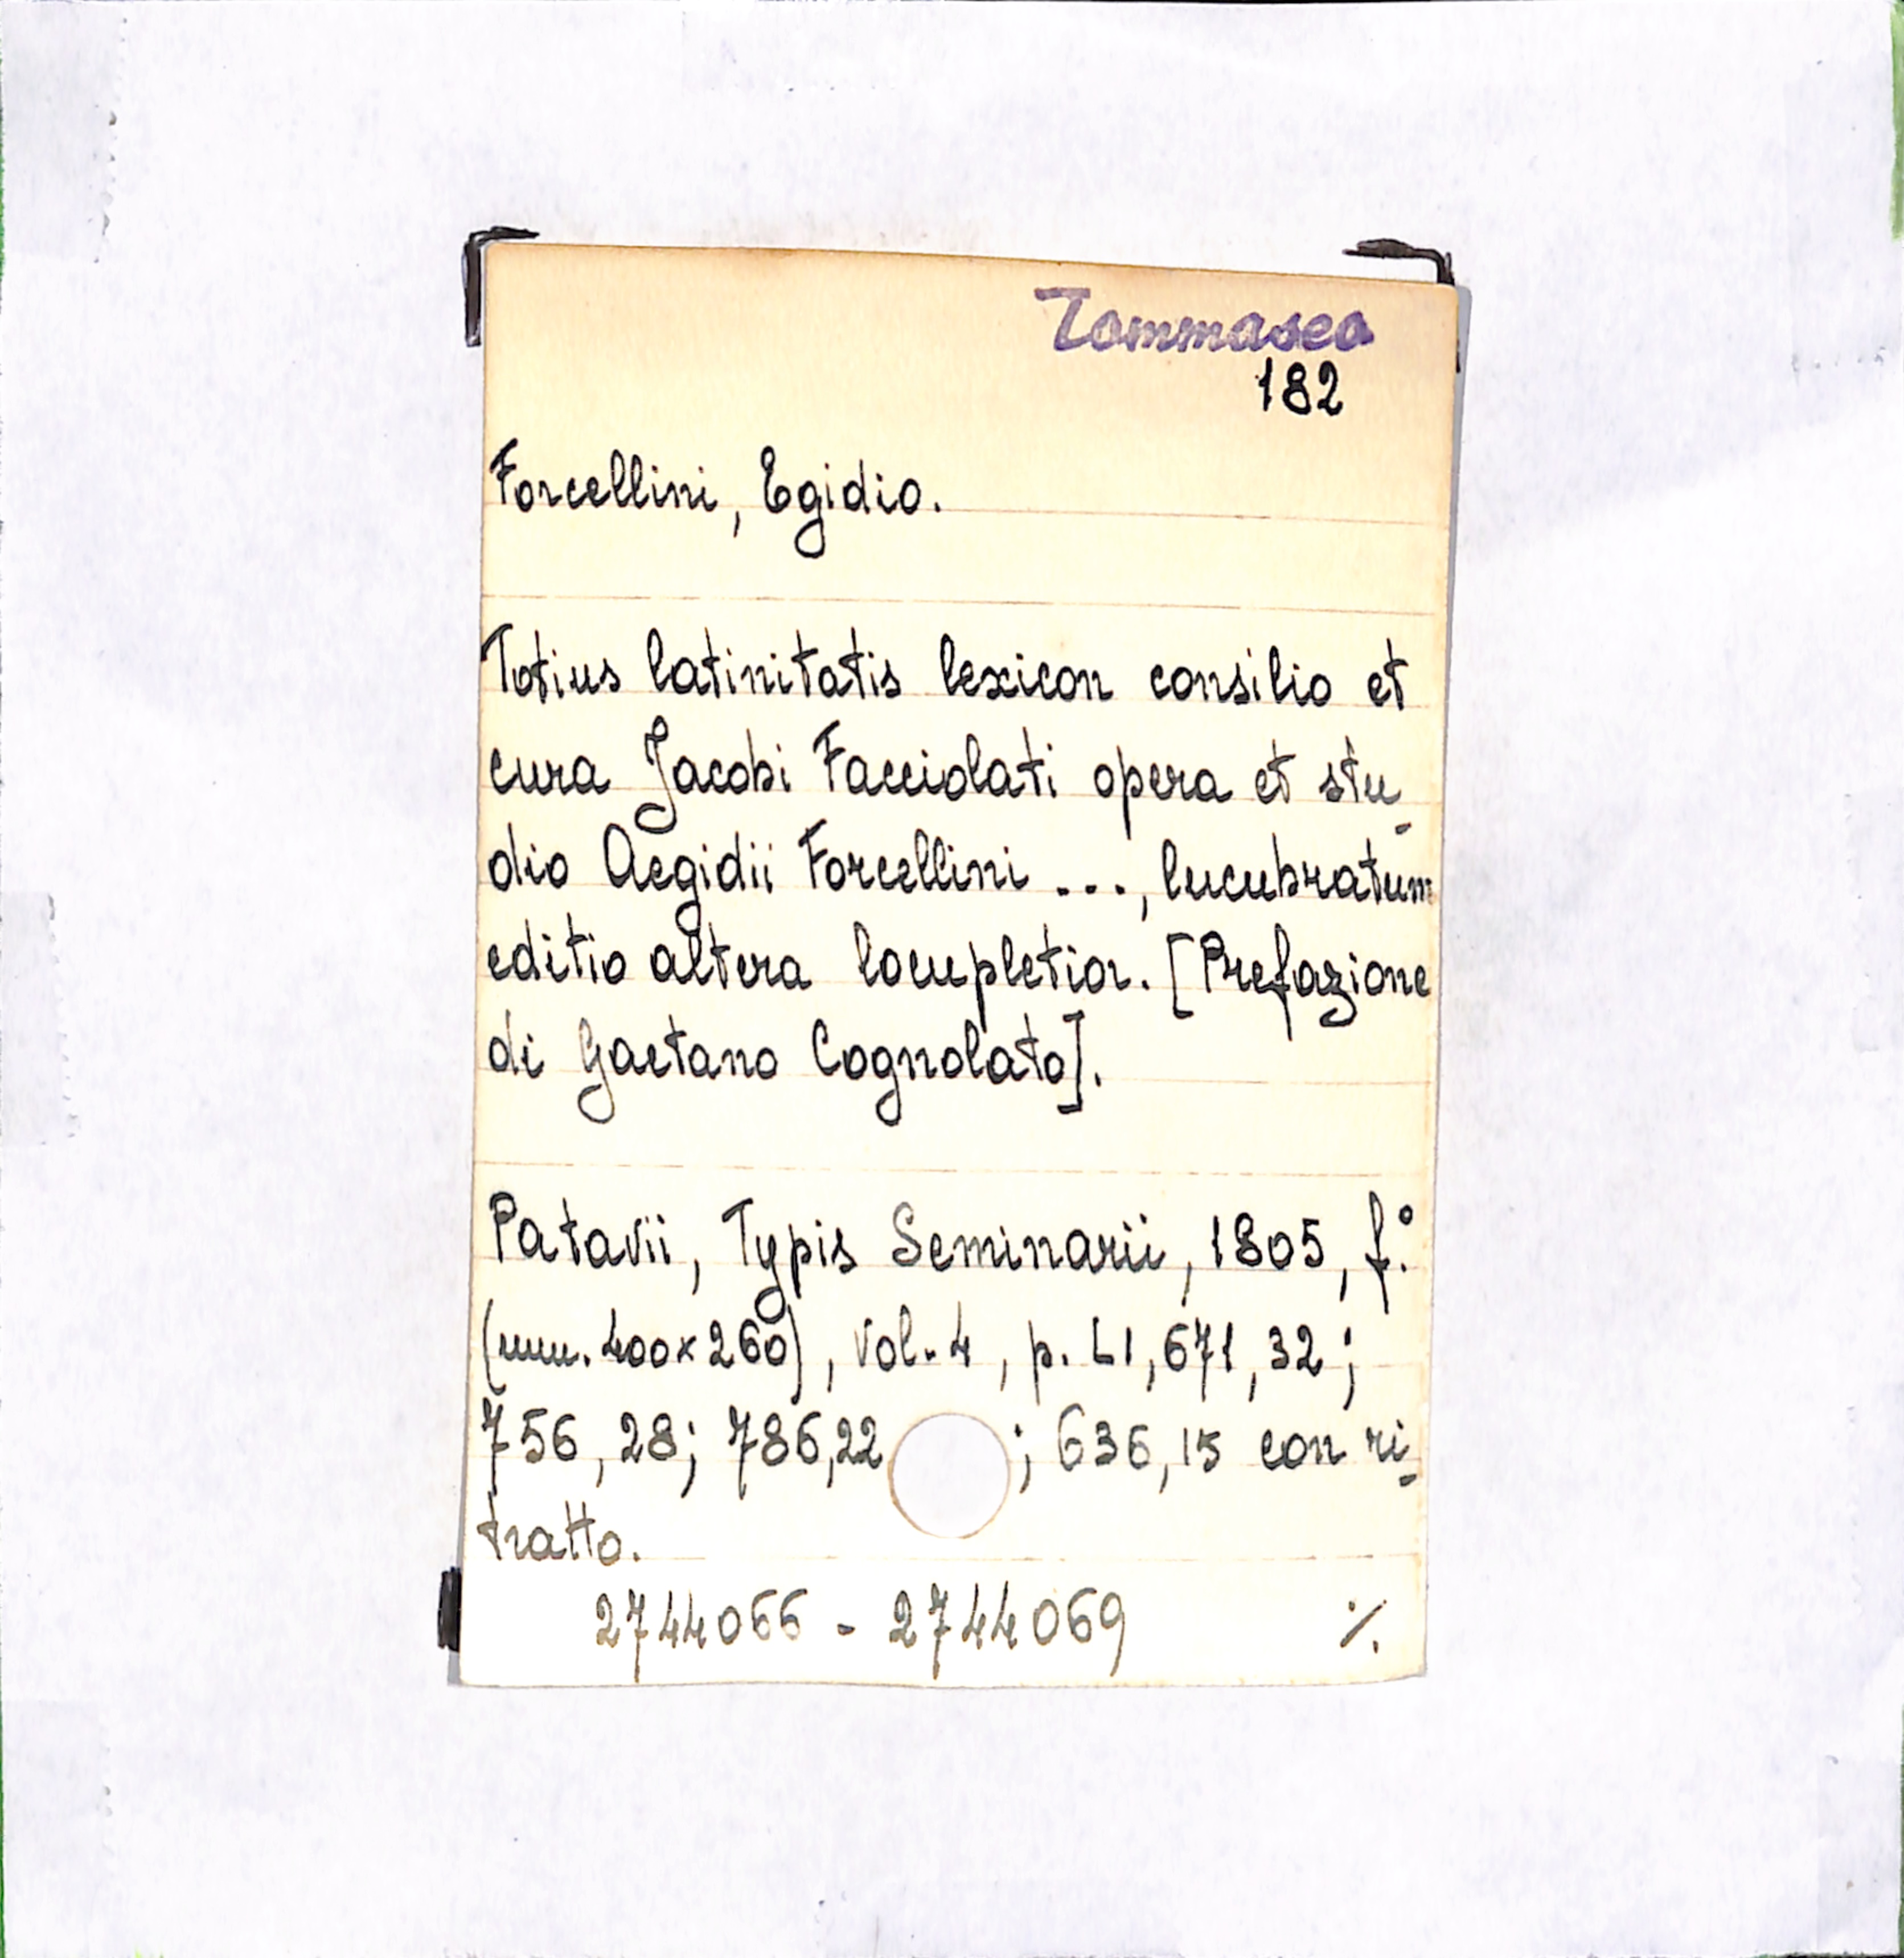 Tommaseo
182
Forcellini, Egidio.
Totius latinitatis lexicon consilio et
cura Jacobi Facciolati opera et stu-
dio Aegidii Forcellini ..., lucubratum
editio altera locupletior. [Prefazione
di Gaetano Cognolato].
Patavii, Typis Seminarii, 1805, f.º
(mm. 400×260), vol. 4, p. LI, 671, 32;
756, 28; 786,22 ; 636, 15 con ri-
tratto.
2744066 - 2744069 ·/.